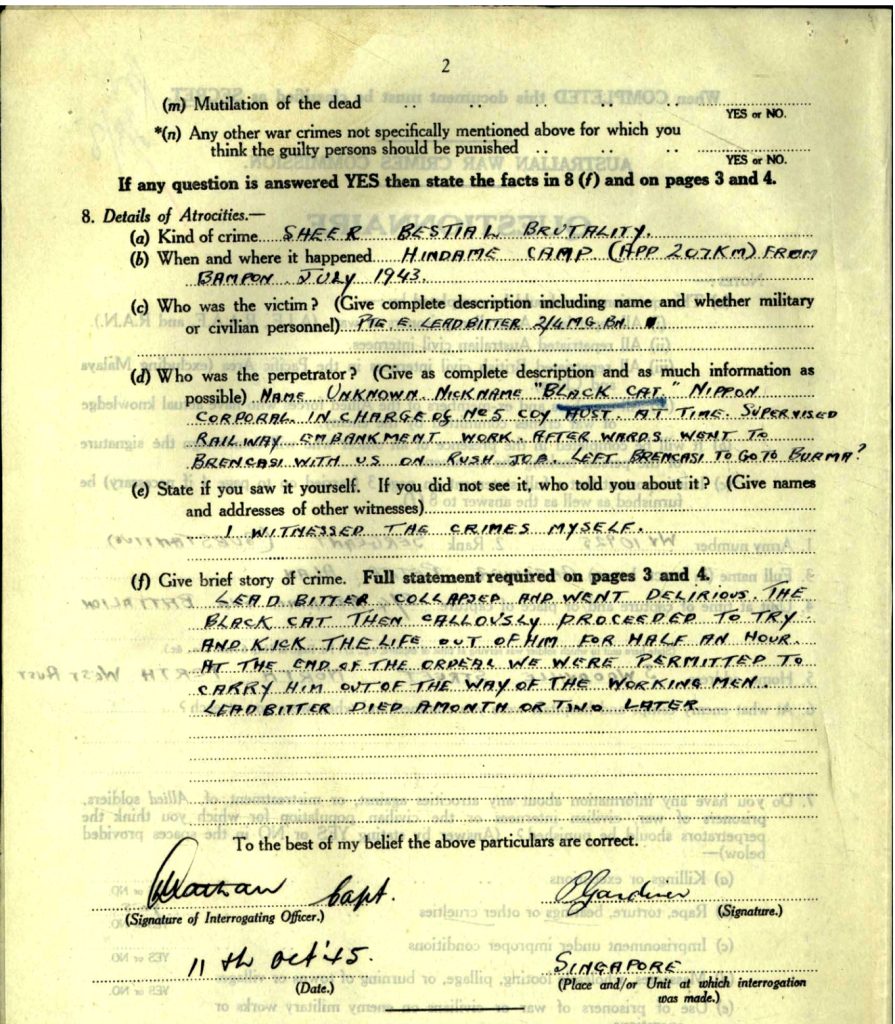 2
(m) Mutilation of the dead .. .. .. .. ..
YES or NO.
*(n) Any other war crimes not specifically mentioned above for which you
think the guilty persons should be punished .. .. .. ..
YES or NO.
If any question is answered YES then state the facts in 8 (f) and on pages 3 and 4.
8. Details of Atrocities.—
(a) Kind of crime SHEER BESTIAL BRUTALITY.
(b) When and where it happened HINDAME CAMP (APP 207KM) FROM
BAMPON. JULY 1943.
(c) Who was the victim? (Give complete description including name and whether military
or civilian personnel) PTE E. LEADBITTER 2/4 MG. BN
(d) Who was the perpetrator? (Give as complete description and as much information as
possible) NAME UNKNOWN. NICKNAME "BLACK CAT." NIPPON
CORPORAL. IN CHARGE of No 5 COY AUST. AT TIME. SUPERVISED
RAILWAY EMBANKMENT WORK. AFTERWARDS WENT TO
BRENCASI WITH US ON RUSH JOB. LEFT BRENCASI TO GO TO BURMA?
(e) State if you saw it yourself. If you did not see it, who told you about it? (Give names
and addresses of other witnesses)
I WITNESSED THE CRIMES MYSELF.
(f) Give brief story of crime. Full statement required on pages 3 and 4.
LEADBITTER COLLAPSED AND WENT DELIRIOUS. THE
BLACK CAT THEN CALLOUSLY PROCEEDED TO TRY
AND KICK THE LIFE OUT OF HIM FOR HALF AN HOUR.
AT THE END OF THE ORDEAL WE WERE PERMITTED TO
CARRY HIM OUT OF THE WAY OF THE WORKING MEN.
LEADBITTER DIED A MONTH OR TWO LATER
To the best of my belief the above particulars are correct.
Capt. Gardiner
(Signature of Interrogating Officer.) (Signature.)
11th Oct '45. SINGAPORE
(Date.) (Place and/or Unit at which interrogation
was made.)